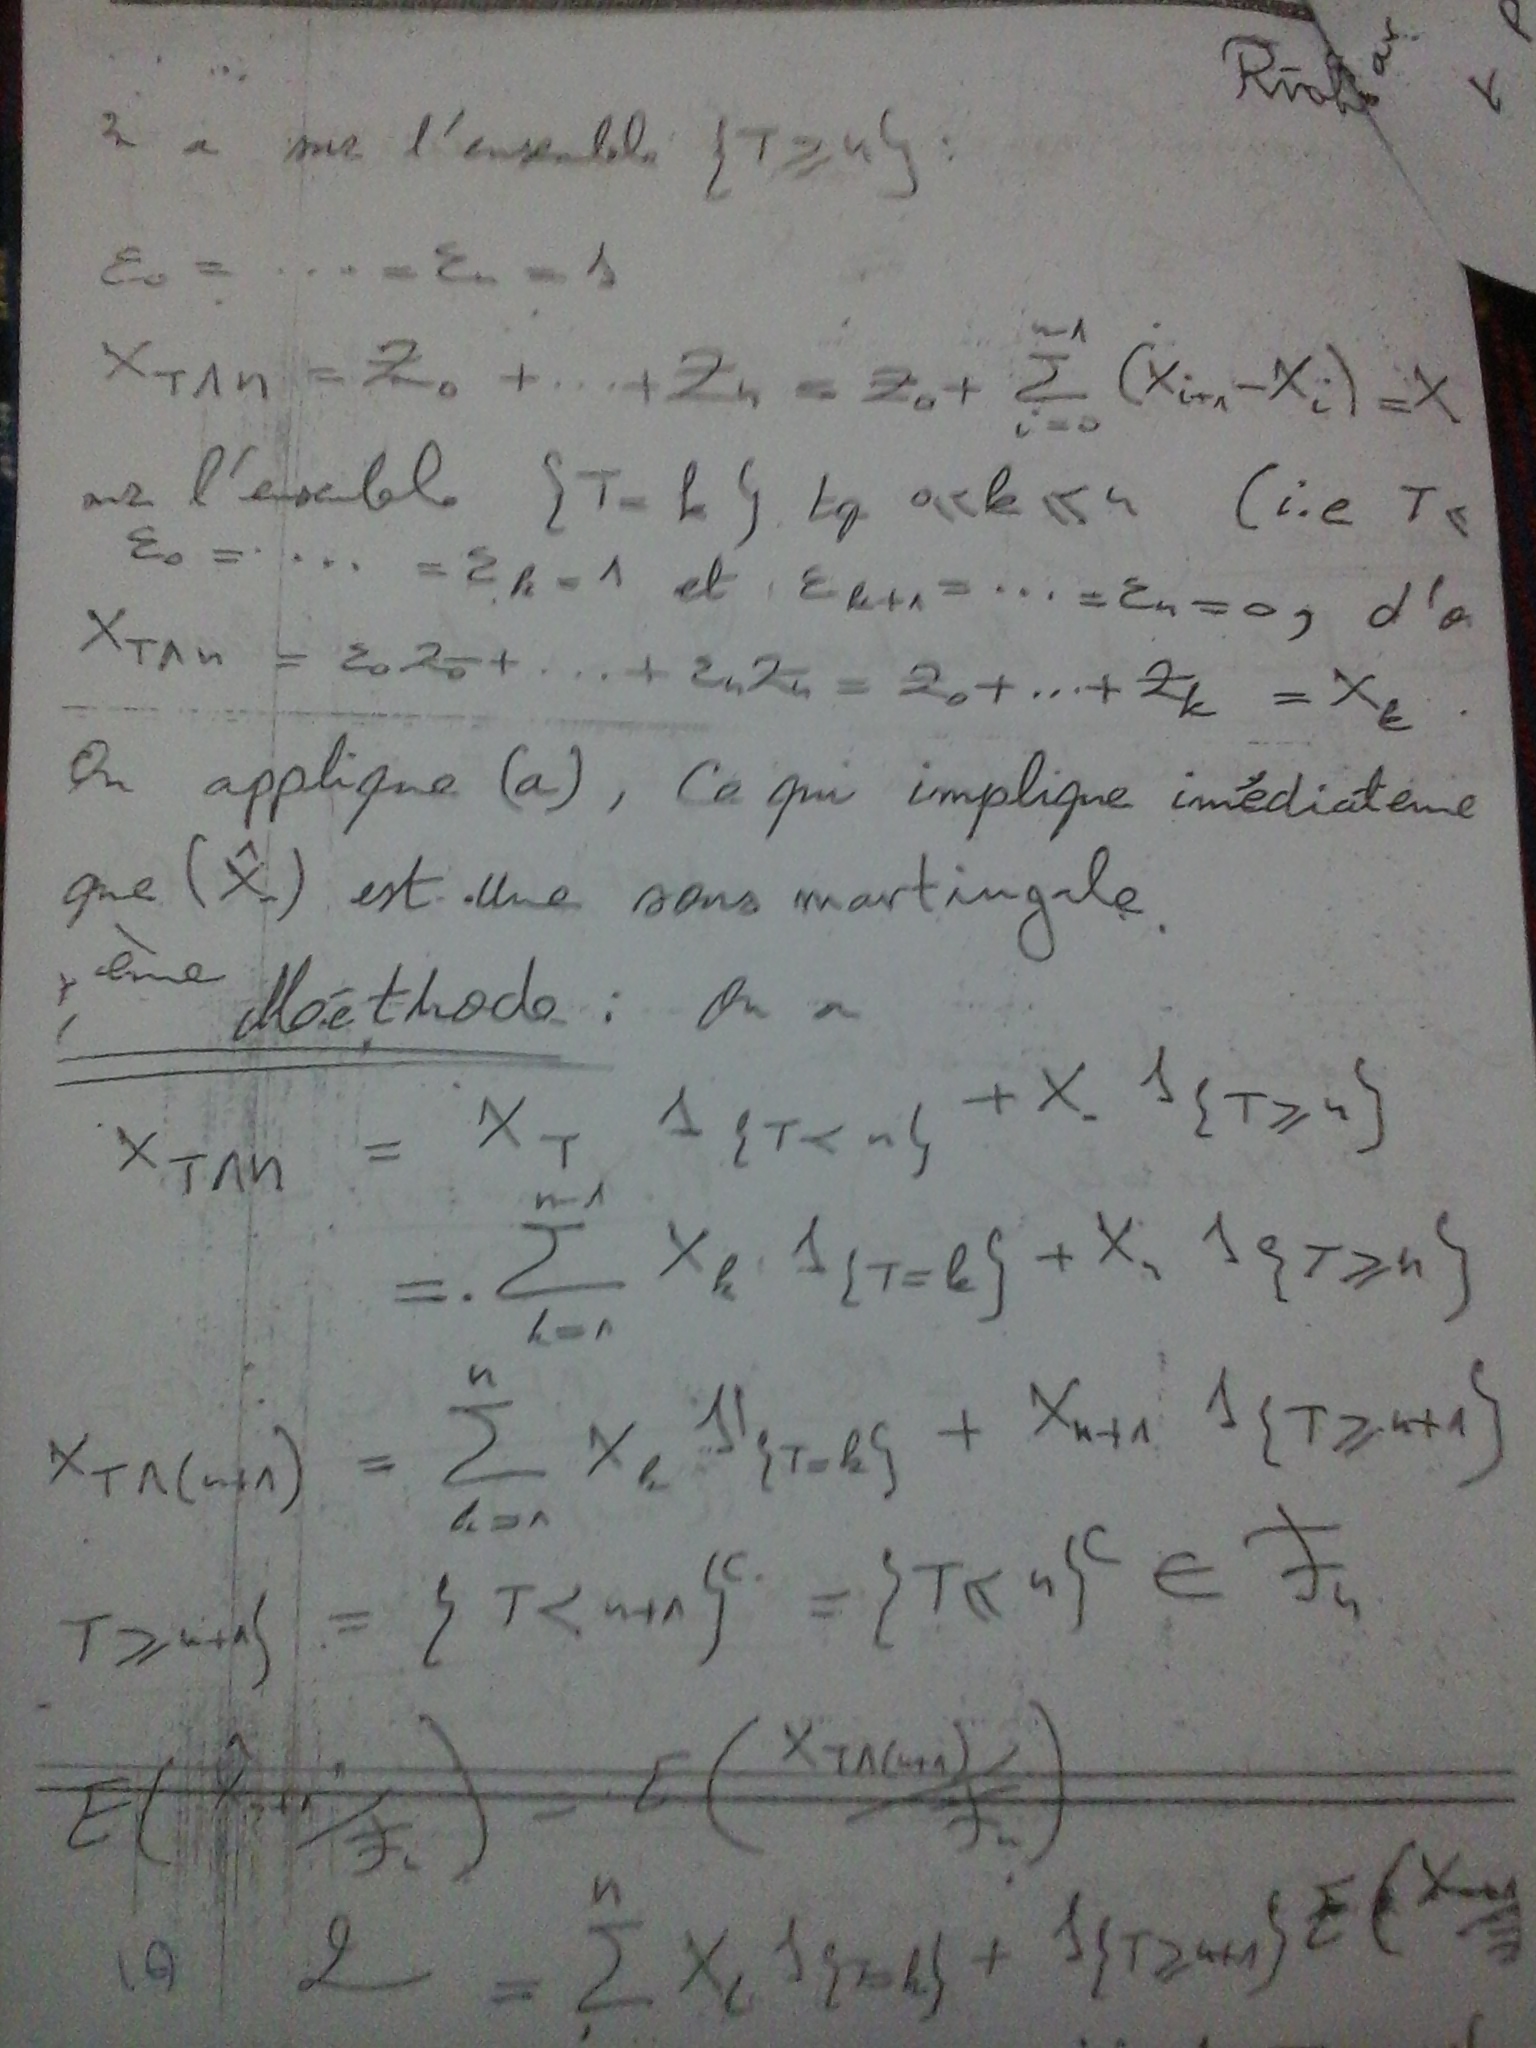 a sur l'ensemble {T ⩾ n} :
ε₀ = .... = εₙ = 1
X_{T∧n} = Z₀ + ... + Zₙ = Z₀ + Σ_{i=0}^{n-1} (X_{i+1} - X_i) = X
sur l'ensemble {T = k} tq 0 ⩽ k ⩽ n (i.e T ⩽
ε₀ = .... = ε_k = 1 et ε_{k+1} = ... = εₙ = 0, d'o
X_{T∧n} = ε₀Z₀ + ... + εₙZₙ = Z₀ + ... + Z_k = X_k .
On applique (a), Ce qui implique imédiateme
que (X̂.) est une sous martingale.
ème Méethode : On a
X_{T∧n} = X_T 1_{T < n} + X. 1_{T ⩾ n}
= Σ_{k=1}^{n-1} X_k 1_{T=k} + Xₙ 1_{T ⩾ n}
X_{T∧(n+1)} = Σ_{k=1}^{n} X_k 1_{T=k} + X_{n+1} 1_{T ⩾ n+1}
T ⩾ n+1} = {T < n+1}^c = {T ⩽ n}^c ∈ ℱₙ
E(X̂_{n+1} / ℱₙ) = E(X_{T∧(n+1)} / ℱₙ)
= Σ^{n} X_k 1_{T=k} + 1_{T ⩾ n+1} E(X